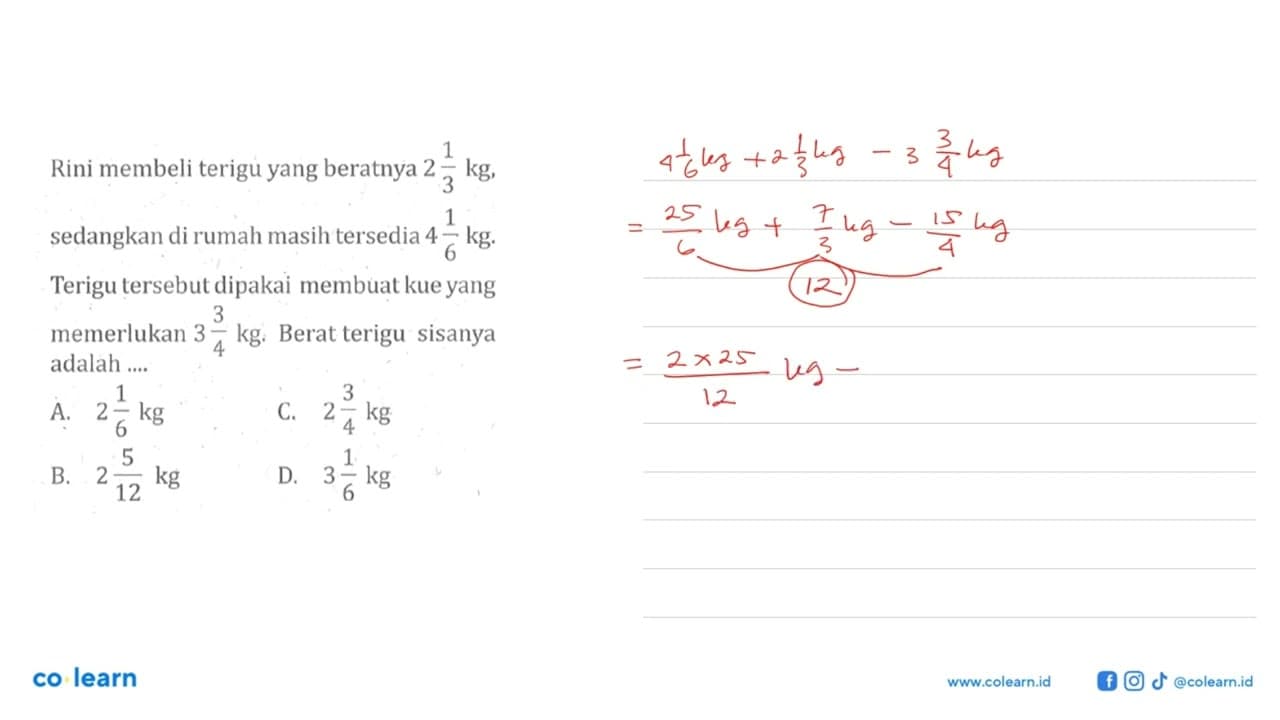 Rini membeli terigu yang beratnya 2 1/3 kg,
sedangkan di rumah masih tersedia 4 1/6 kg.
Terigu tersebut dipakai membuat kue yang
memerlukan 3 3/4 kg. Berat terigu sisanya
adalah ....
A. 2 1/6 kg C. 2 3/4 kg
B. 2 5/12 kg D. 3 1/6 kg
4 1/6 kg + 2 1/3 kg - 3 3/4 kg
= 25/6 kg + 7/3 kg - 15/4 kg
12
= 2 x 25/12 kg -
co learn
www.colearn.id
@colearn.id